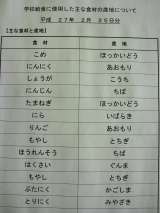 学校給食に使用した主な食材の産地について
平成 27年 2月 25日分
【主な食材と産地】
食材 産地
こめ ほっかいどう
にんにく あおもり
しょうが こうち
にんじん ちば
たまねぎ ほっかいどう
にら いばらき
りんご あおもり
もやし とちぎ
ほうれんそう ちば
はくさい ぐんま
もやし とちぎ
ぶたにく かごしま
とりにく みやざき